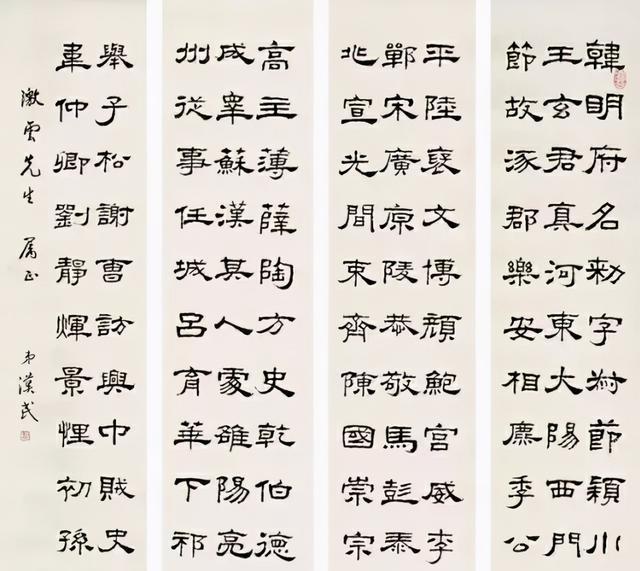 韓明府名勑字叔節穎川
王玄君真河東大陽西門
節故涿郡樂安相麃季公
平陸裒文博頏鮑宮威李
鄲宋廣原陵恭敬馬彭泰
北宣光間束齊陳國崇宗
高主薄薛陶方史乾伯德
成宰蘇漢其人處雄陽亮
州從事任城呂育華下祁
舉子松謝曹訪興中賊史
韋仲卿劉靜煇景悝初孫
澂雲先生 屬正 弟漢民